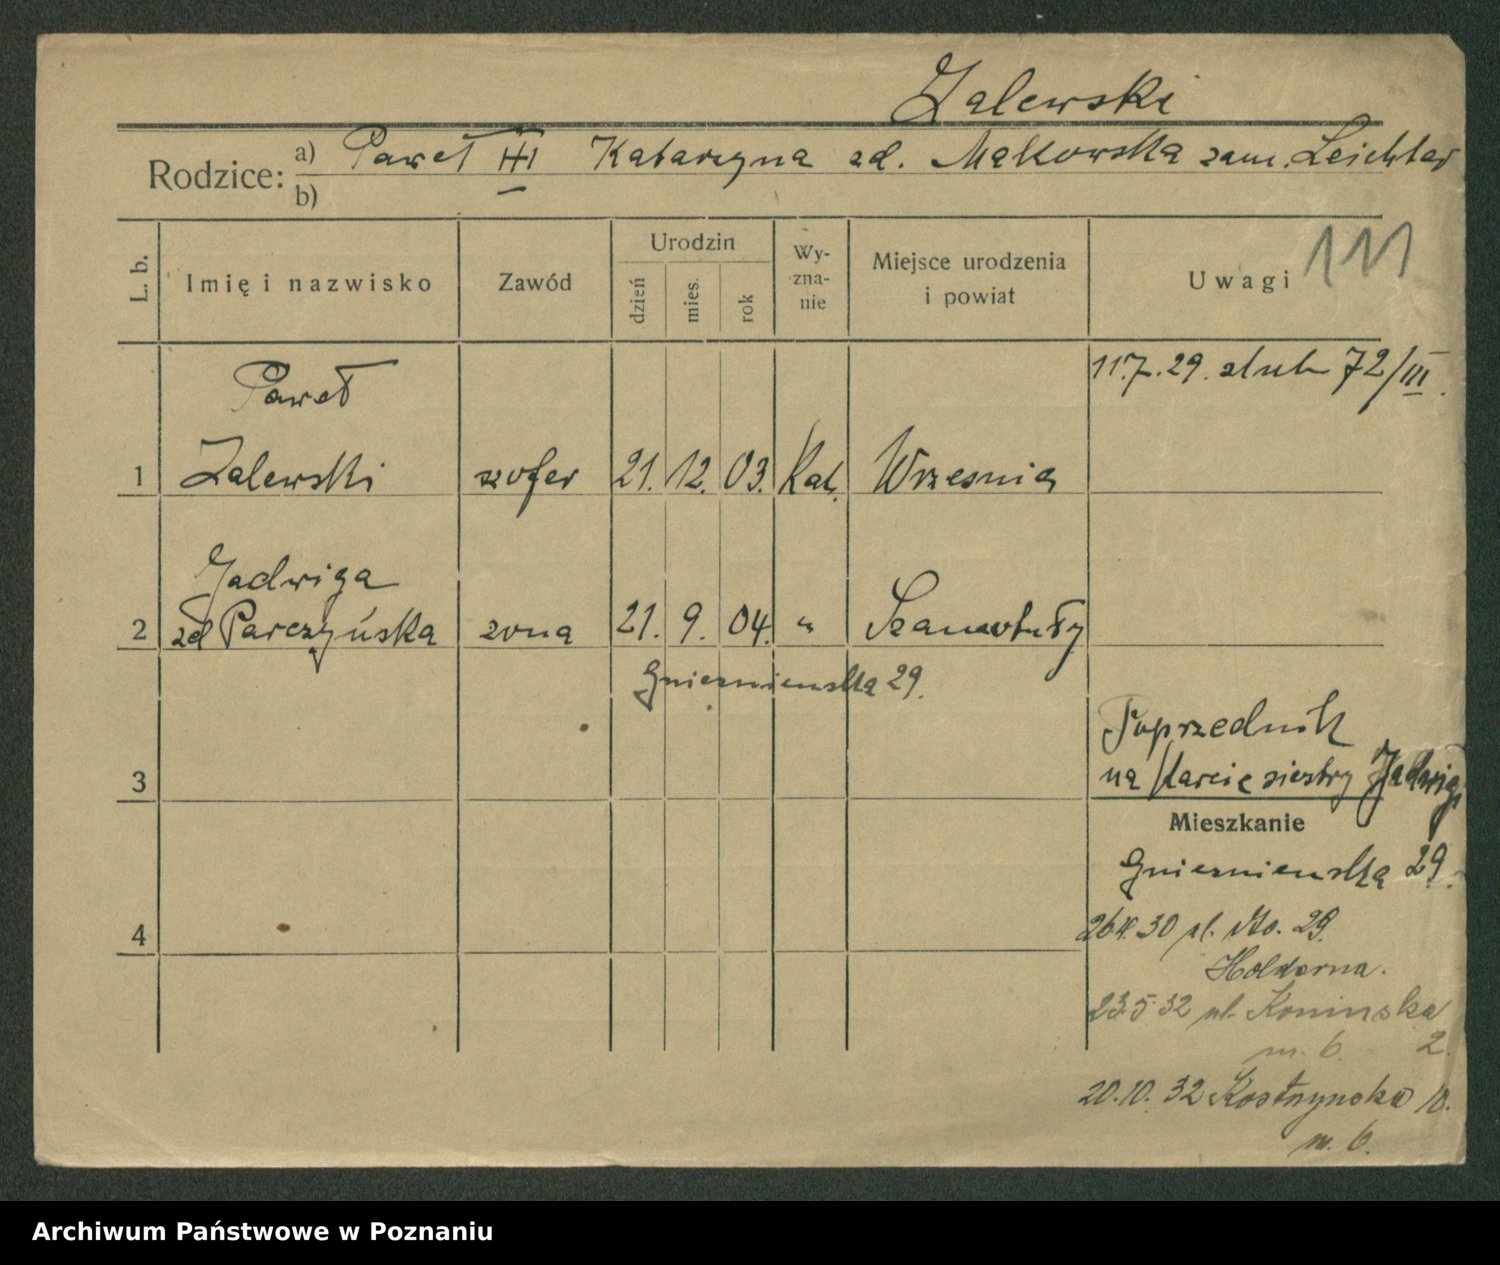 Zalewski
Rodzice: a) Paweł Katarzyna zd. Małkowska zam. Leichter
b)
L. b. Imię i nazwisko Zawód Urodzin dzień mies. rok Wy-zna-nie Miejsce urodzenia i powiat Uwagi 111
11.7.29. slub 72/III.
Paweł
1 Zalewski szofer 21. 12. 03. Kat. Wrzesnia
Jadwiga
2 zd Parczyńska zona 21. 9. 04. " Szamotuły
Gnieznienska 29.
Poprzednik
3 na karcie siestry Jadwigi
Mieszkanie
Gnieznienska 29.
4 30 ul. 29.
Holderna.
23.5.32 ul. Koninska
m. 6. 2.
20.10.32 Kostrzynska 10.
m. 6.
Archiwum Państwowe w Poznaniu